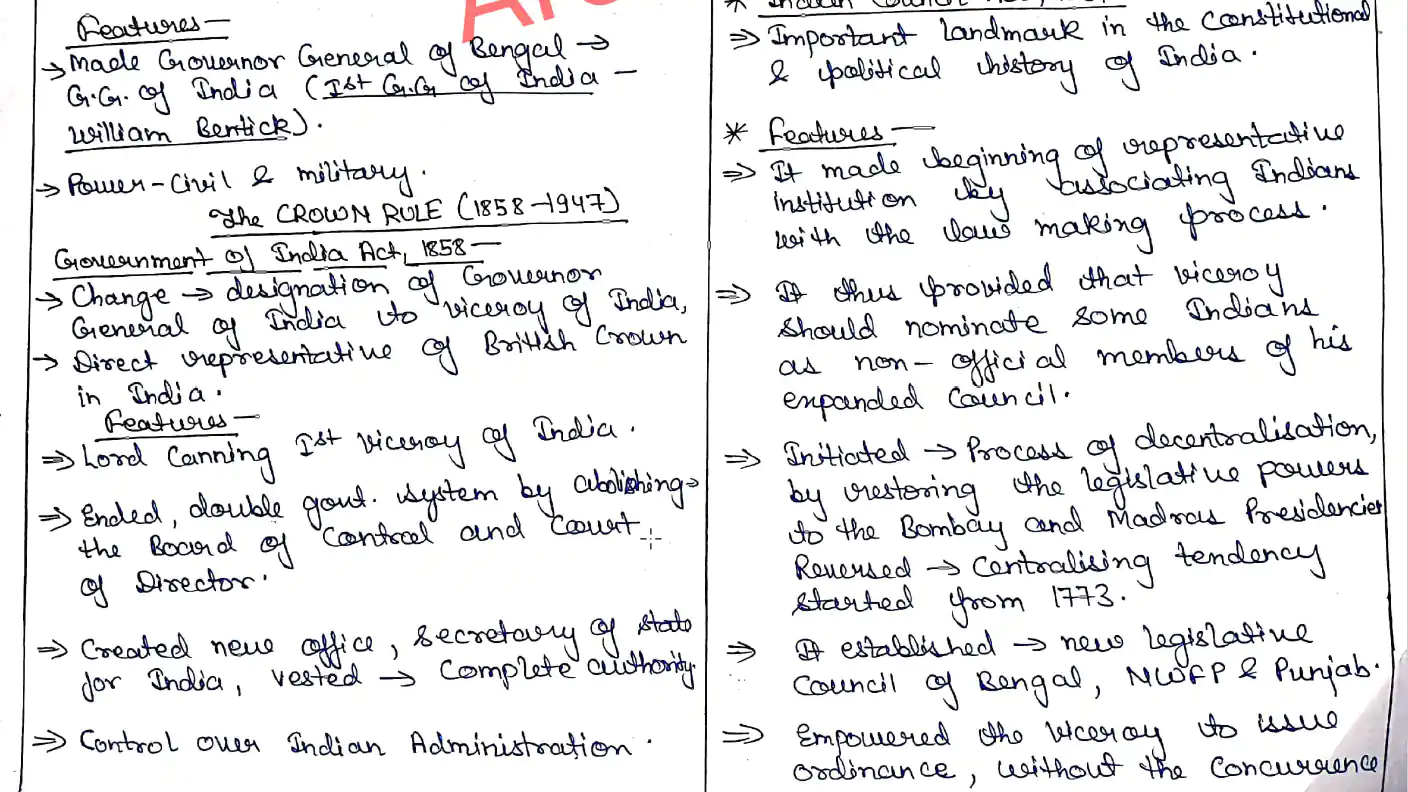 Features —
→ Made Governor General of Bengal →
G.G. of India (Ist G.G of India —
William Bentick).
→ Power - Civil & military.
The CROWN RULE (1858-1947)
Government of India Act, 1858 —
→ Change → designation of Governor
General of India to viceroy of India,
→ Direct representative of British Crown
in India.
Features —
⇒ Lord Canning Ist viceroy of India.
⇒ Ended, double govt. system by abolishing →
the Board of Control and Court
of Director.
⇒ Created new office, secretary of state
for India, vested → Complete authority.
⇒ Control over Indian Administration.
⇒ Important landmark in the constitutional
& political history of India.
* Features —
⇒ It made beginning of representative
institution by associating Indians
with the law making process.
⇒ It thus provided that viceroy
should nominate some Indians
as non-official members of his
expanded council.
⇒ Initiated → Process of decentralisation,
by restoring the legislative powers
to the Bombay and Madras Presidencies
Reversed → Centralising tendency
started from 1773.
⇒ It established → new legislative
Council of Bengal, NWFP & Punjab.
⇒ Empowered the viceroy to issue
ordinance, without the concurrence